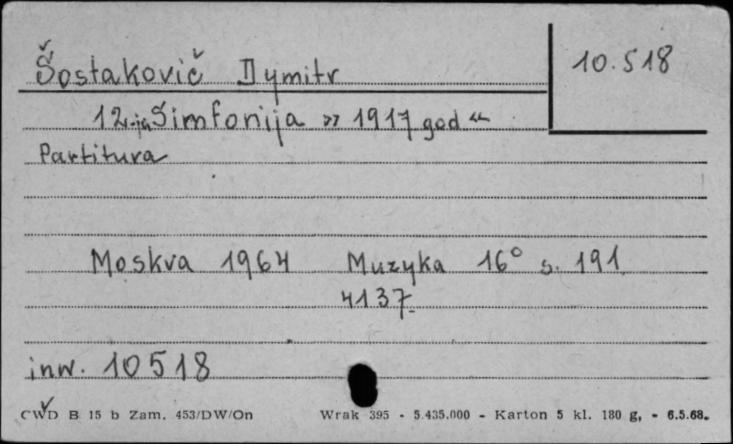 Šostakovič Dymitr
10.518
12-ja Simfonija » 1917 god «
Partitura
Moskva 1964 Muzyka 16° s. 191
4137
inw. 10518
CWD B 15 b Zam. 453/DW/On Wrak 395 - 5.435.000 - Karton 5 kl. 180 g, - 6.5.68.